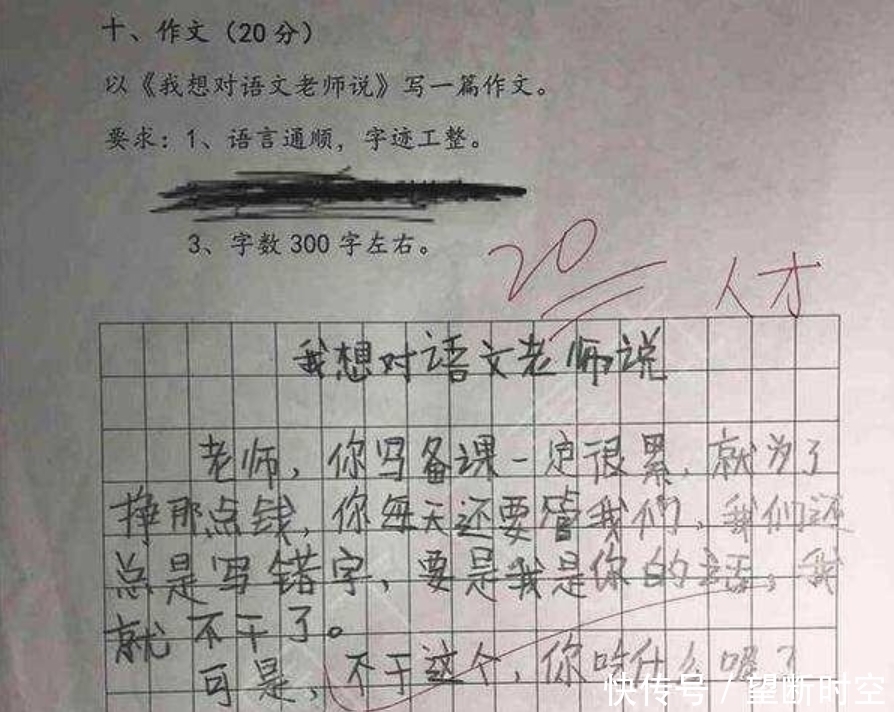 十、作文（20分）
以《我想对语文老师说》写一篇作文。
要求：1、语言通顺，字迹工整。
3、字数300字左右。
20
人才
我想对语文老师说
老师，你写备课一定很累，就为了
挣那点钱，你每天还要管我们，我们还
总是写错字，要是我是你的话，我
就不干了。
可是，不干这个，你吃什么呢？
快传号 / 望断时空